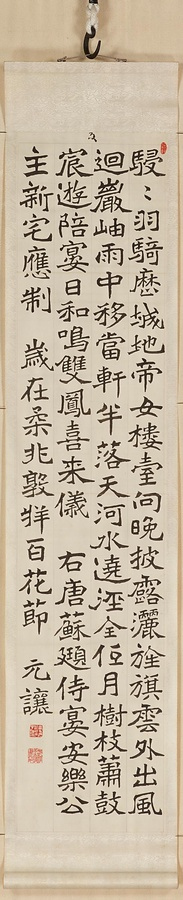 駸〻羽騎歷城地帝女楼臺向晚披露灑旌旗雲外出風
迴巖岫雨中移當軒半落天河水遶逕全低月樹枝蕭鼓
宸遊陪宴日和鳴雙鳳喜来儀 右唐蘇頲侍宴安樂公
主新宅應制 歲在柔兆敦牂百花節 元讓